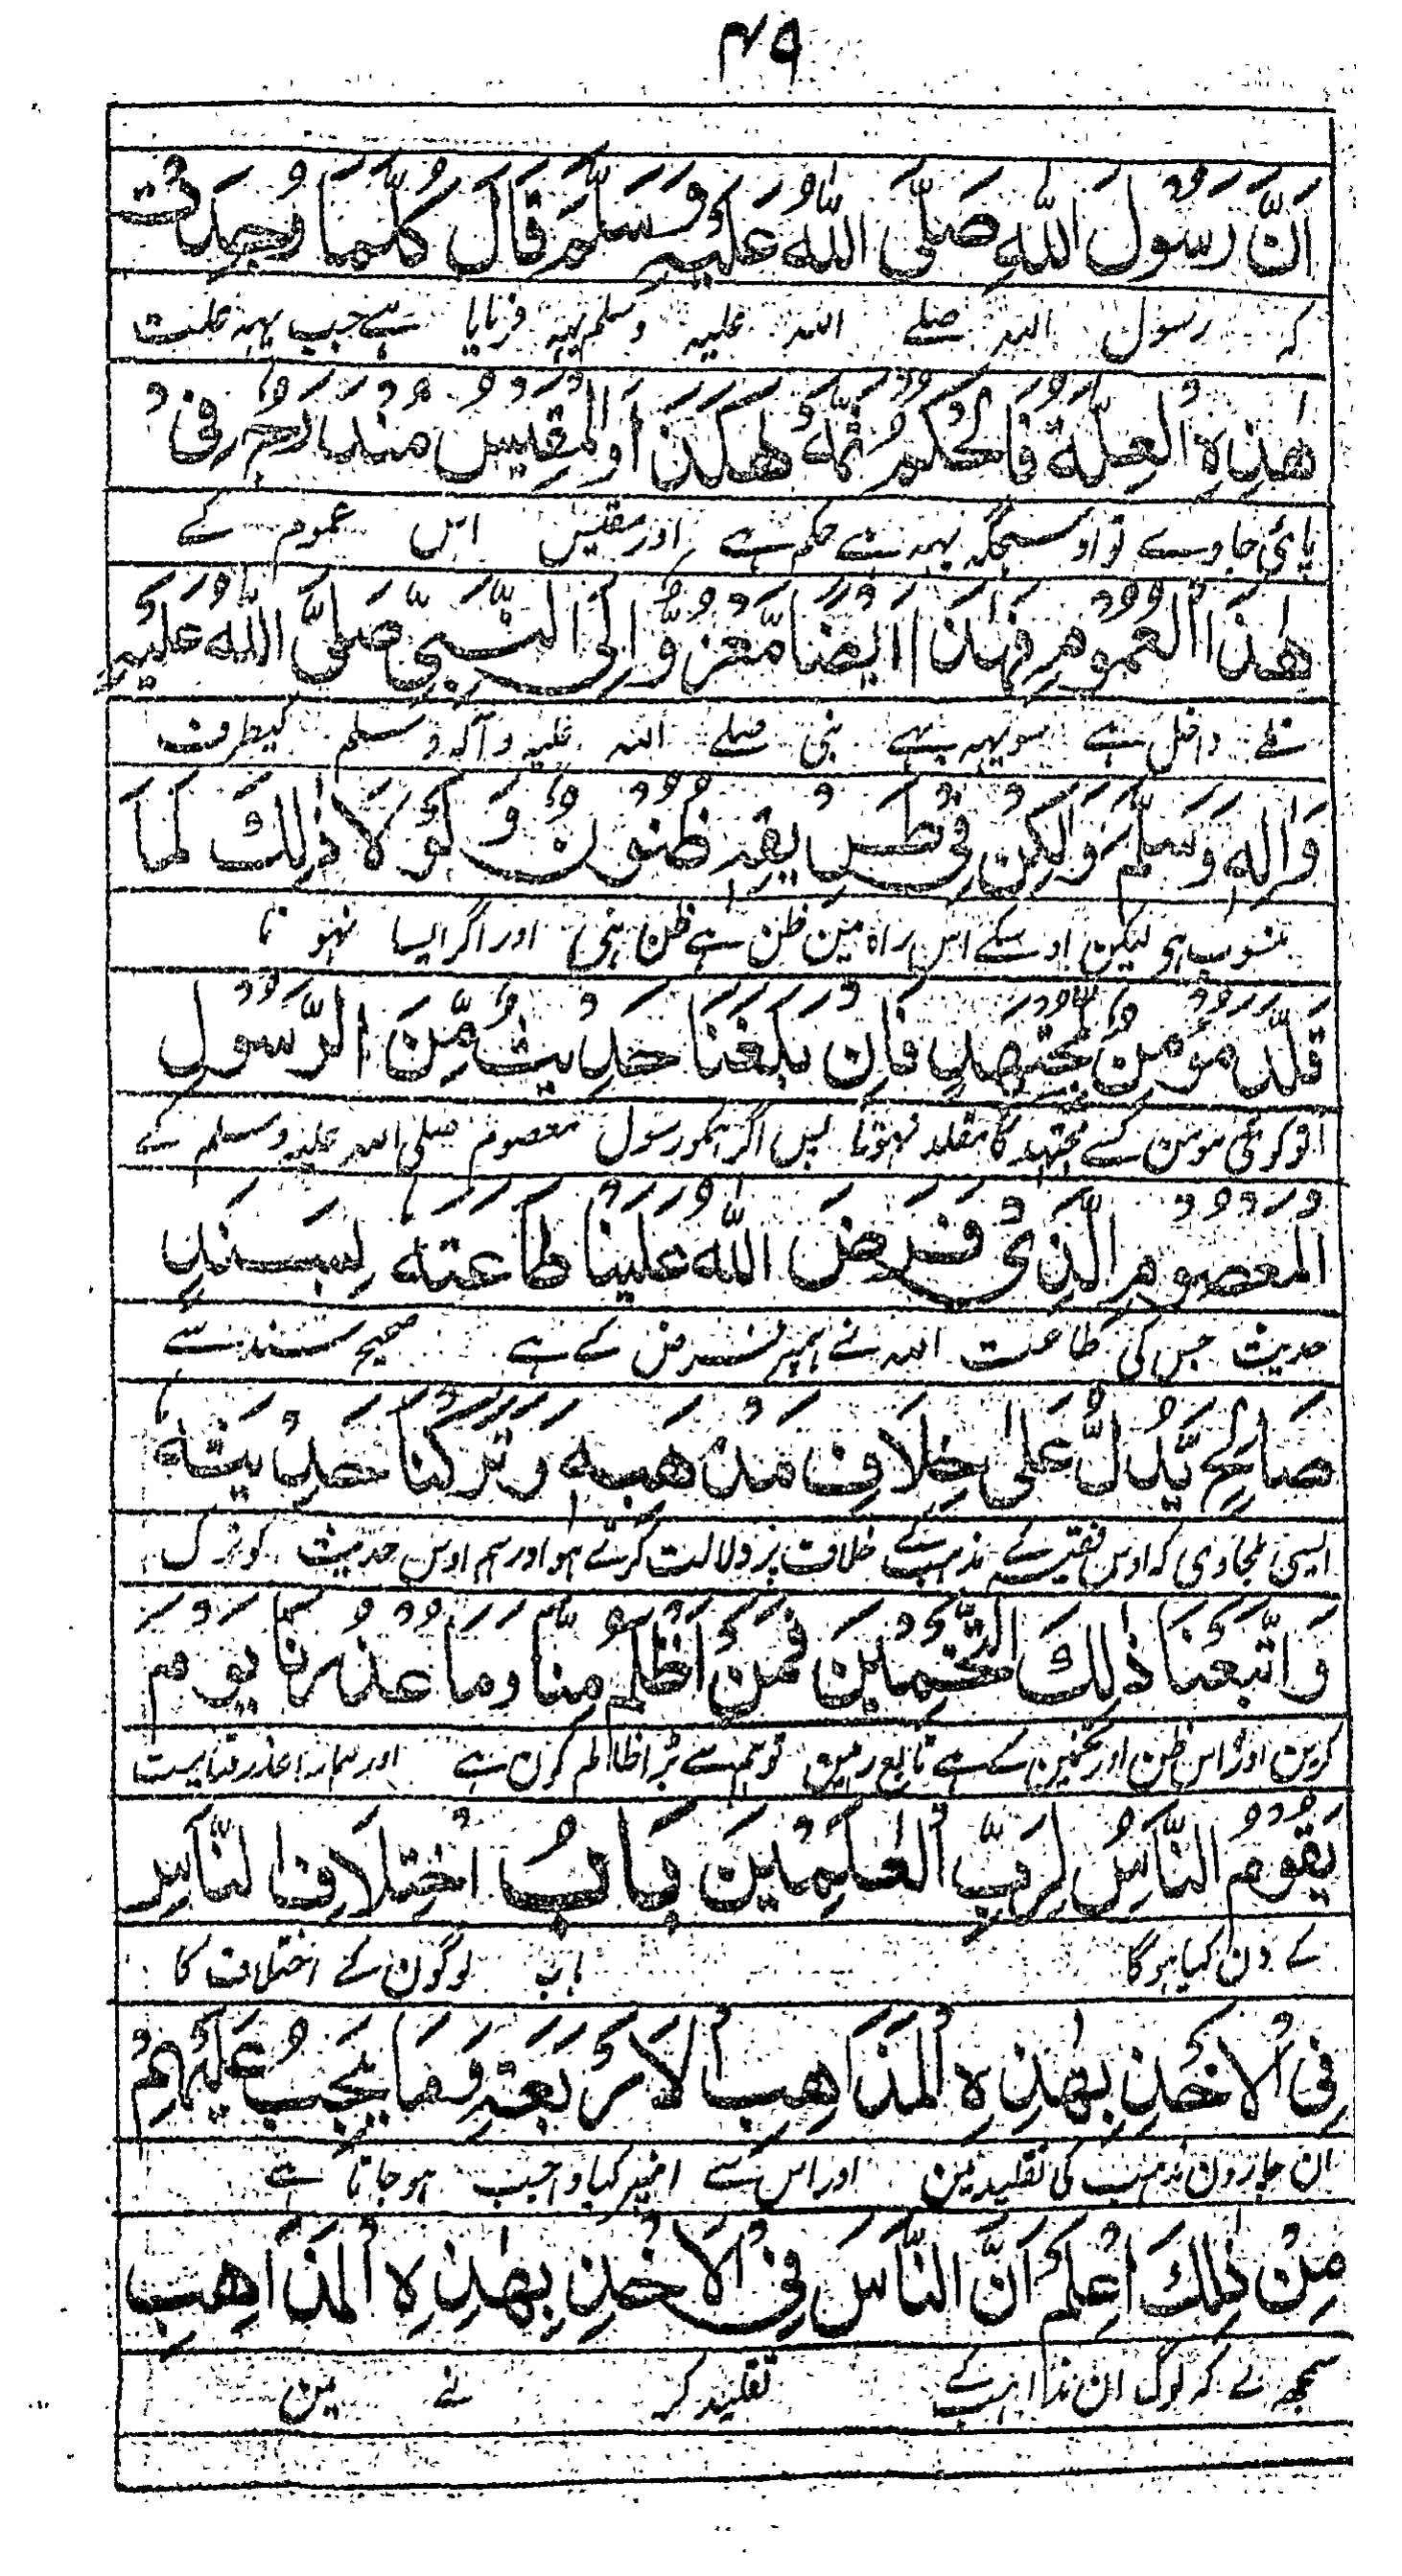 ۴۹
اَنَّ رَسُوْلَ اللّٰهِ صَلَّى اللّٰهُ عَلَيْهِ وَسَلَّمَ قَالَ كُلَّمَا وُجِدَتْ
کہ رسول اللہ صلے اللہ علیہ وسلم نیہ فرمایا ہے جب یہہ علت
هٰذِهِ الْعِلَّةُ فَالْحُكْمُ ثَمَّهٗ هٰكَذَا وَالْمَقِيْسُ مُنْدَرِجٌ فِيْ
پائی جاوے تو اوسجگہ یہہ ہے حکم ہے اور مقیس اس عموم کے
هٰذَا الْعُمُوْمِ فَهٰذَا اَيْضًا مَّعْزُوٌّ اِلَى النَّبِيِّ صَلَّى اللّٰهُ عَلَيْهِ
نلے داخل ہے سو یہہ بہے نبی صلے اللہ علیہ وآلہ وسلم کیطرف
وَاٰلِهٖ وَسَلَّمَ وَلٰكِنْ فِيْ طَرِيْقِهٖ ظُنُوْنٌ وَّلَوْلَا ذٰلِكَ لَمَا
منسوب ہی لیکن اوسکے اس راہ مین ظن ہے ظن ہی اور اگر ایسا نہو تا
قَلَّدَ مُؤْمِنٌ لِمُجْتَهِدٍ فَاِنْ بَلَغَنَا حَدِيْثٌ مِّنَ الرَّسُوْلِ
تو کوئی مومن کسے مجتہد کا مقلد نہوتا پس اگر ہمکو رسول معصوم صلی اللہ علیہ وسلم کے
الْمَعْصُوْمِ الَّذِيْ فَرَضَ اللّٰهُ عَلَيْنَا طَاعَتَهٗ بِسَنَدٍ
حدیث جس کی طاعت اللہ نے ہمپر فرض کے ہے صحیح سند سے
صَالِحٍ يَّدُلُّ عَلٰى خِلَافِ مَذْهَبِهٖ وَتَرَكْنَا حَدِيْثَهٗ
ایسی ملجاوی کہ اوس فقیہ کے مذہب کے خلاف پر دلالت کرتے ہو اور ہم اوس حدیث کو ترک
وَاتَّبَعْنَا ذٰلِكَ التَّخْمِيْنَ فَمَنْ اَظْلَمُ مِنَّا وَمَا عُذْرُنَا يَوْمَ
کرین اور اس ظن اور تخمین کے ہے تابع رہین تو ہم سے بڑا ظالم کون ہے اور ہمارا عذر قیامت
يَقُوْمُ النَّاسُ لِرَبِّ الْعٰلَمِيْنَ بَابُ اخْتِلَافِ النَّاسِ
کے دن کیا ہوگا باب لوگون کے اختلاف کا
فِي الْاَخْذِ بِهٰذِهِ الْمَذَاهِبِ الْاَرْبَعَةِ وَمَا يَجِبُ عَلَيْهِمْ
ان چارون مذہب کی تقلید مین اور اس سے انپر کیا واجب ہو جاتا ہے
مِنْ ذٰلِكَ اِعْلَمْ اَنَّ النَّاسَ فِي الْاَخْذِ بِهٰذِهِ الْمَذَاهِبِ
سمجھ لے کہ لوگ ان مذاہب کے تقلید کر نے مین